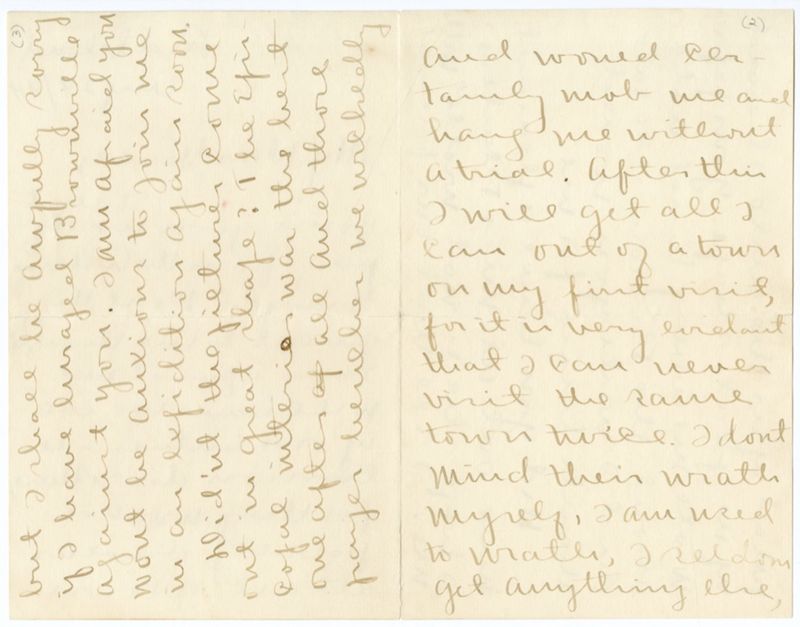 (2)
and would cer-
tainly mob me and
hang me without
a trial. After this
I will get all I
can out of a town
on my first visit,
for it is very evidant
that I can never
visit the same
town twice. I dont
mind their wrath
myself, I am used
to wrath, I seldom
get anything else,
(3)
but I shall be awfully sorry
if I have enraged Brownville
against you. I am afraid you
wont be anxious to join me
in an expidition again soon.
Did'nt the pictures come
out in great shape? The Epis-
copal interior was the best
one after all and those
prayer benches we wickedly